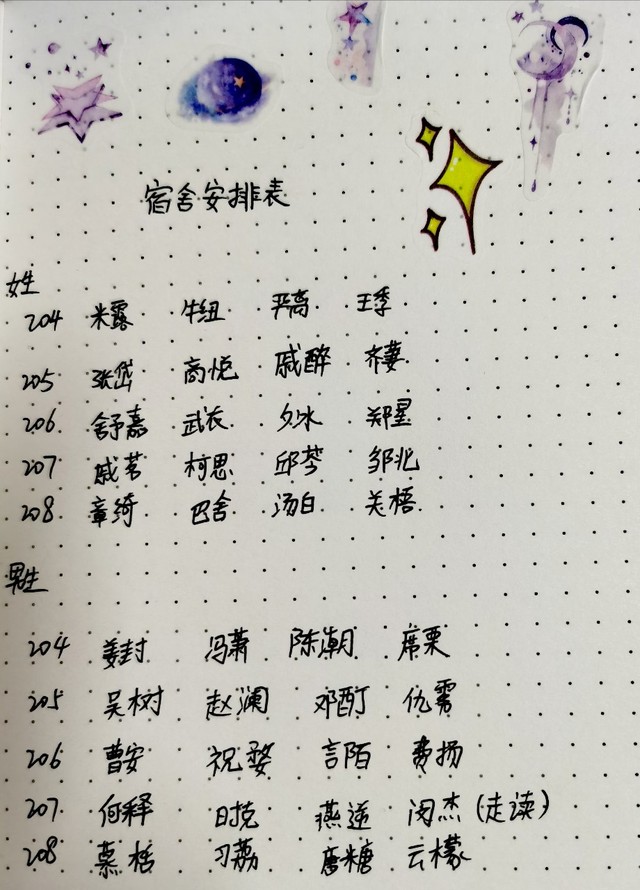 宿舍安排表
女生
204 米露 牛纽 严高 王季
205 张岱 商悦 戚醉 齐萋
206 舒嘉 武衣 夕冰 郑星
207 戚茗 柯思 邱芩 邹北
208 章绮 巴舍 汤白 关梧
男生
204 姜封 冯萧 陈潮 席栗
205 吴树 赵澜 邓酊 仇雾
206 曹安 祝婺 言陌 费扬
207 何释 时克 燕逆 闵杰(走读)
208 慕栝 习荔 唐糖 云檬